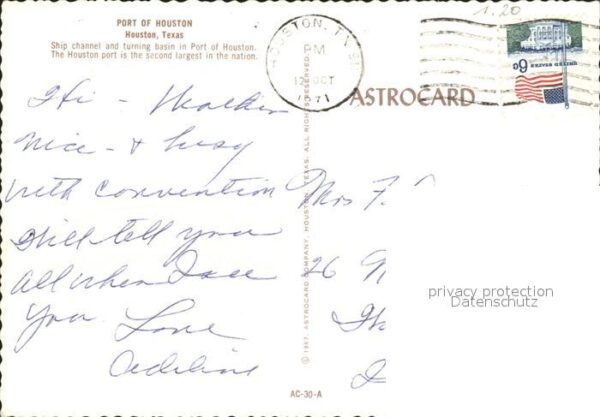 PORT OF HOUSTON
Houston, Texas
Ship channel and turning basin in Port of Houston.
The Houston port is the second largest in the nation.
HOUSTON, TX
PM
12 OCT
1971
1.20
6c
UNITED STATES
ASTROCARD
Hi - Weather
nice - & busy
with convention
Will tell you
all when I see
you. Love
Adeline
Mrs F.
26 N
privacy protection
Datenschutz
© 1967, ASTROCARD COMPANY, HOUSTON, TEXAS. ALL RIGHTS RESERVED
AC-30-A